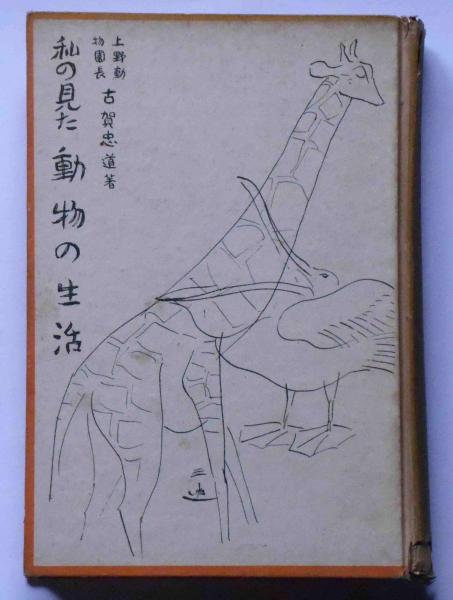 上野動
物園長
古賀忠道著
私の見た動物の生活